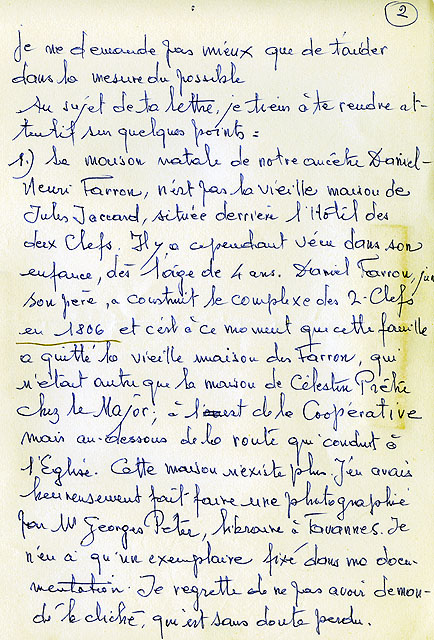 2
Je ne demande pas mieux que de t'aider
dans la mesure du possible
Au sujet de ta lettre, je tiens à te rendre at-
tentif sur quelques points =
1.) La maison natale de notre ancêtre Daniel-
Henri Farron, n'est pas la vieille maison de
Jules Jaccard, située derrière l'Hôtel des
deux Clefs. Il y a cependant vécu dans son
enfance, dès l'âge de 4 ans. Daniel Farron, jun
son père, a construit le complexe des 2-Clefs
en 1806 et c'est à ce moment que cette famille
a quitté la vieille maison des Farron, qui
n'était autre que la maison de Célestin Prêtre
chez le Major; à l'ouest de la Coopérative
mais au-dessous de la route qui conduit à
l'Eglise. Cette maison n'existe plus. J'en avais
heureusement fait faire une photographie
par Mr Georges Peter, libraire à Tavannes. Je
n'en ai qu'un exemplaire fixé dans ma docu-
mentation. Je regrette de ne pas avoir deman-
dé le cliché, qui est sans doute perdu.